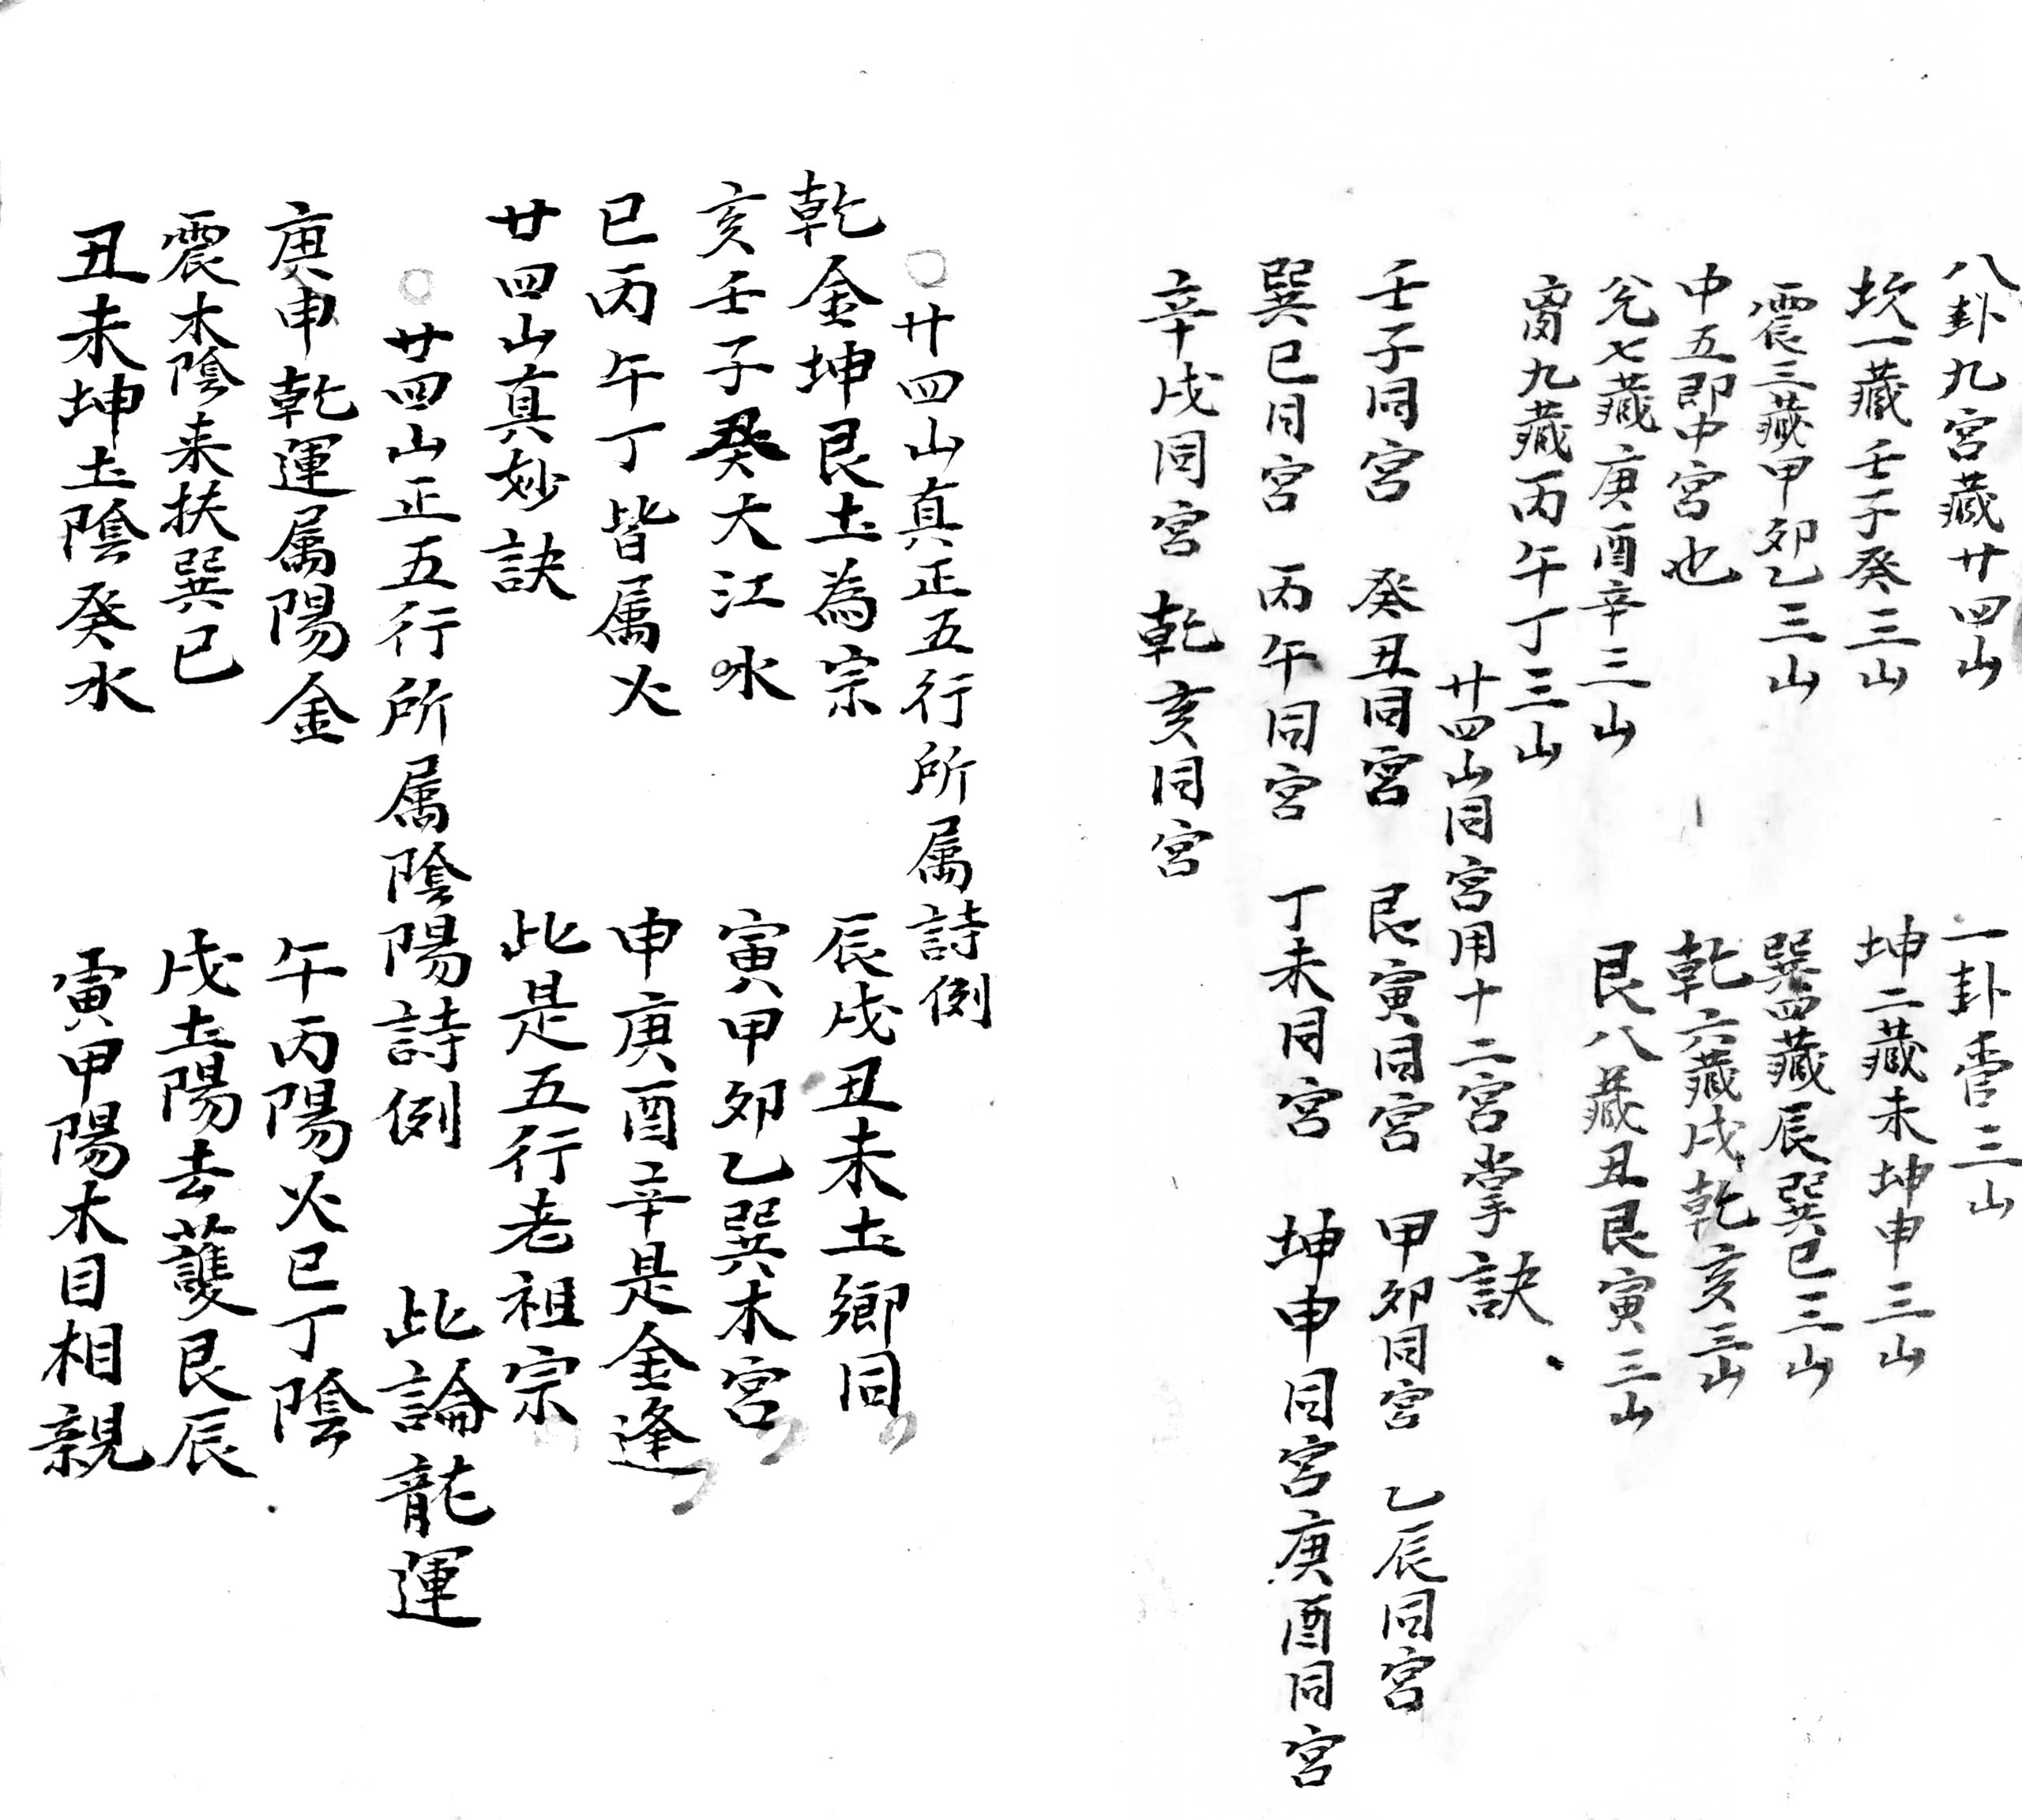 八卦九宮藏廿四山　一卦管三山
坎一藏壬子癸三山　坤二藏未坤申三山
震三藏甲卯乙三山　巽四藏辰巽巳三山
中五即中宮也　乾六藏戌乾亥三山
兌七藏庚酉辛三山　艮八藏丑艮寅三山
离九藏丙午丁三山
廿四山同宮用十二宮掌訣
壬子同宮　癸丑同宮　艮寅同宮　甲卯同宮　乙辰同宮
巽巳同宮　丙午同宮　丁未同宮　坤申同宮　庚酉同宮
辛戌同宮　乾亥同宮
○廿四山真正五行所属詩例
乾金坤艮土為宗　辰戌丑未土鄉同
亥壬子癸大江水　寅甲卯乙巽木宮
巳丙午丁皆属火　申庚酉辛是金逢
廿四山真妙訣　此是五行老祖宗
○廿四山正五行所属陰陽詩例　此論龍運
庚申乾運属陽金　午丙陽火巳丁陰
震木陰来扶巽巳　戌土陽去護艮辰
丑未坤土陰癸水　寅甲陽木目相親